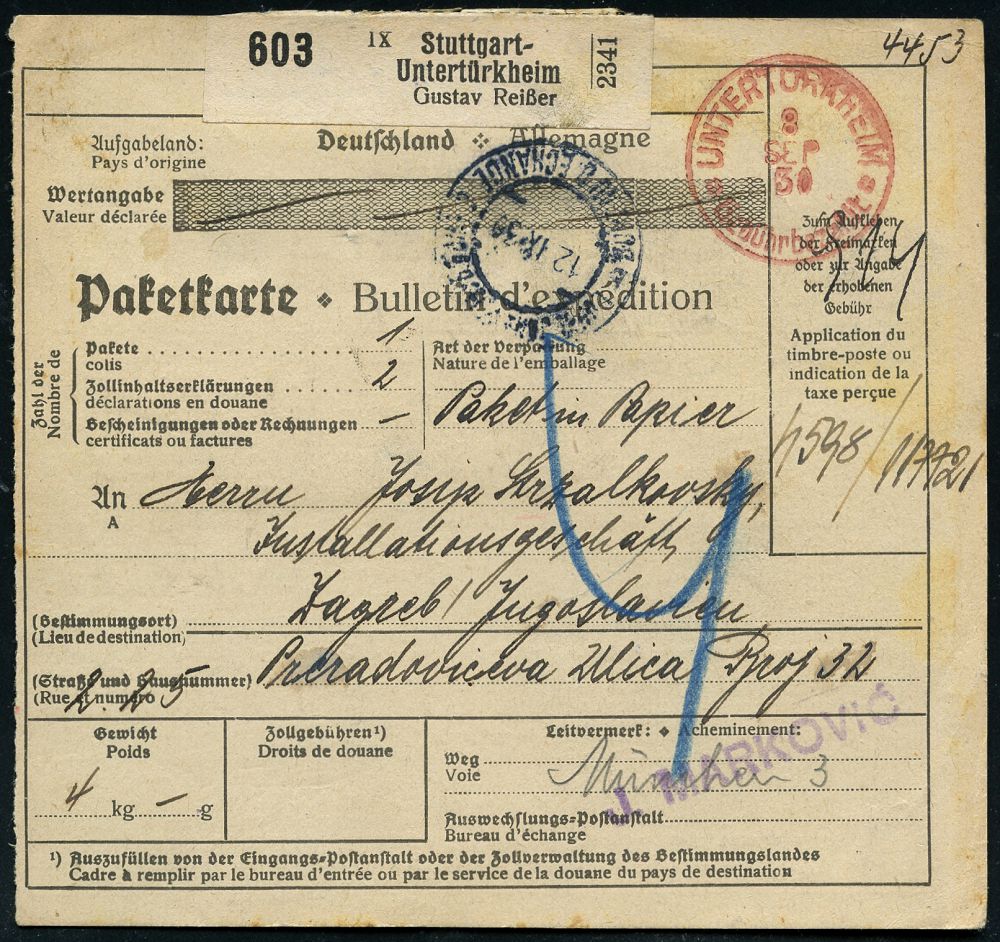 4453
603 IX Stuttgart-
Untertürkheim
Gustav Reißer
2341
UNTERTÜRKHEIM
8
SEP
30
Aufgabeland: Deutschland Allemagne
Pays d'origine
Wertangabe
Valeur déclarée
12 IX 30
Zum Aufkleben
der Freimarken
oder zur Angabe
der erhobenen
Gebühr
Application du
timbre-poste ou
indication de la
taxe perçue
Paketkarte Bulletin d'expédition
Zahl der
Nombre de
Pakete 1
colis
Zollinhaltserklärungen 2
déclarations en douane
Bescheinigungen oder Rechnungen –
certificats ou factures
Art der Verpackung
Nature de l'emballage
Paket in Papier
An Herrn Josip Strzalkovsky,
A
Installationsgeschäft
(Bestimmungsort) Zagreb / Jugoslavien
(Lieu de destination)
(Straße und Hausnummer) Preradoviceva Ulica Broj 32
(Rue et numéro)
Gewicht
Poids
4 kg – g
Zollgebühren¹)
Droits de douane
Leitvermerk: Acheminement:
Weg
Voie
München 3
J. MARKOVIĆ
Auswechslungs-Postanstalt
Bureau d'échange
¹) Auszufüllen von der Eingangs-Postanstalt oder der Zollverwaltung des Bestimmungslandes
Cadre à remplir par le bureau d'entrée ou par le service de la douane du pays de destination